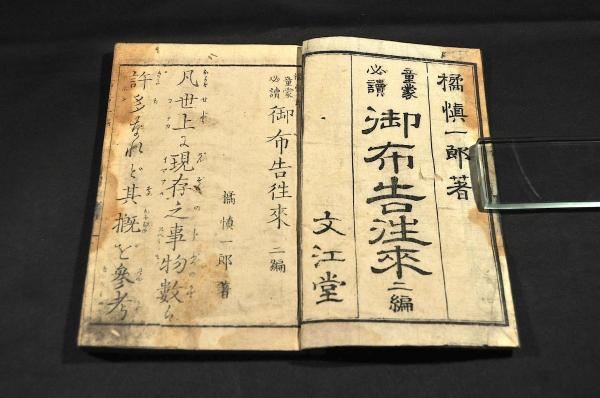 橘慎一郎著
童蒙
必讀
御布告往來 二編
文江堂
童蒙
必讀
御布告往來 二編
橘慎一郎著
凡世上に現存之事物數
許多なれど其概を參考